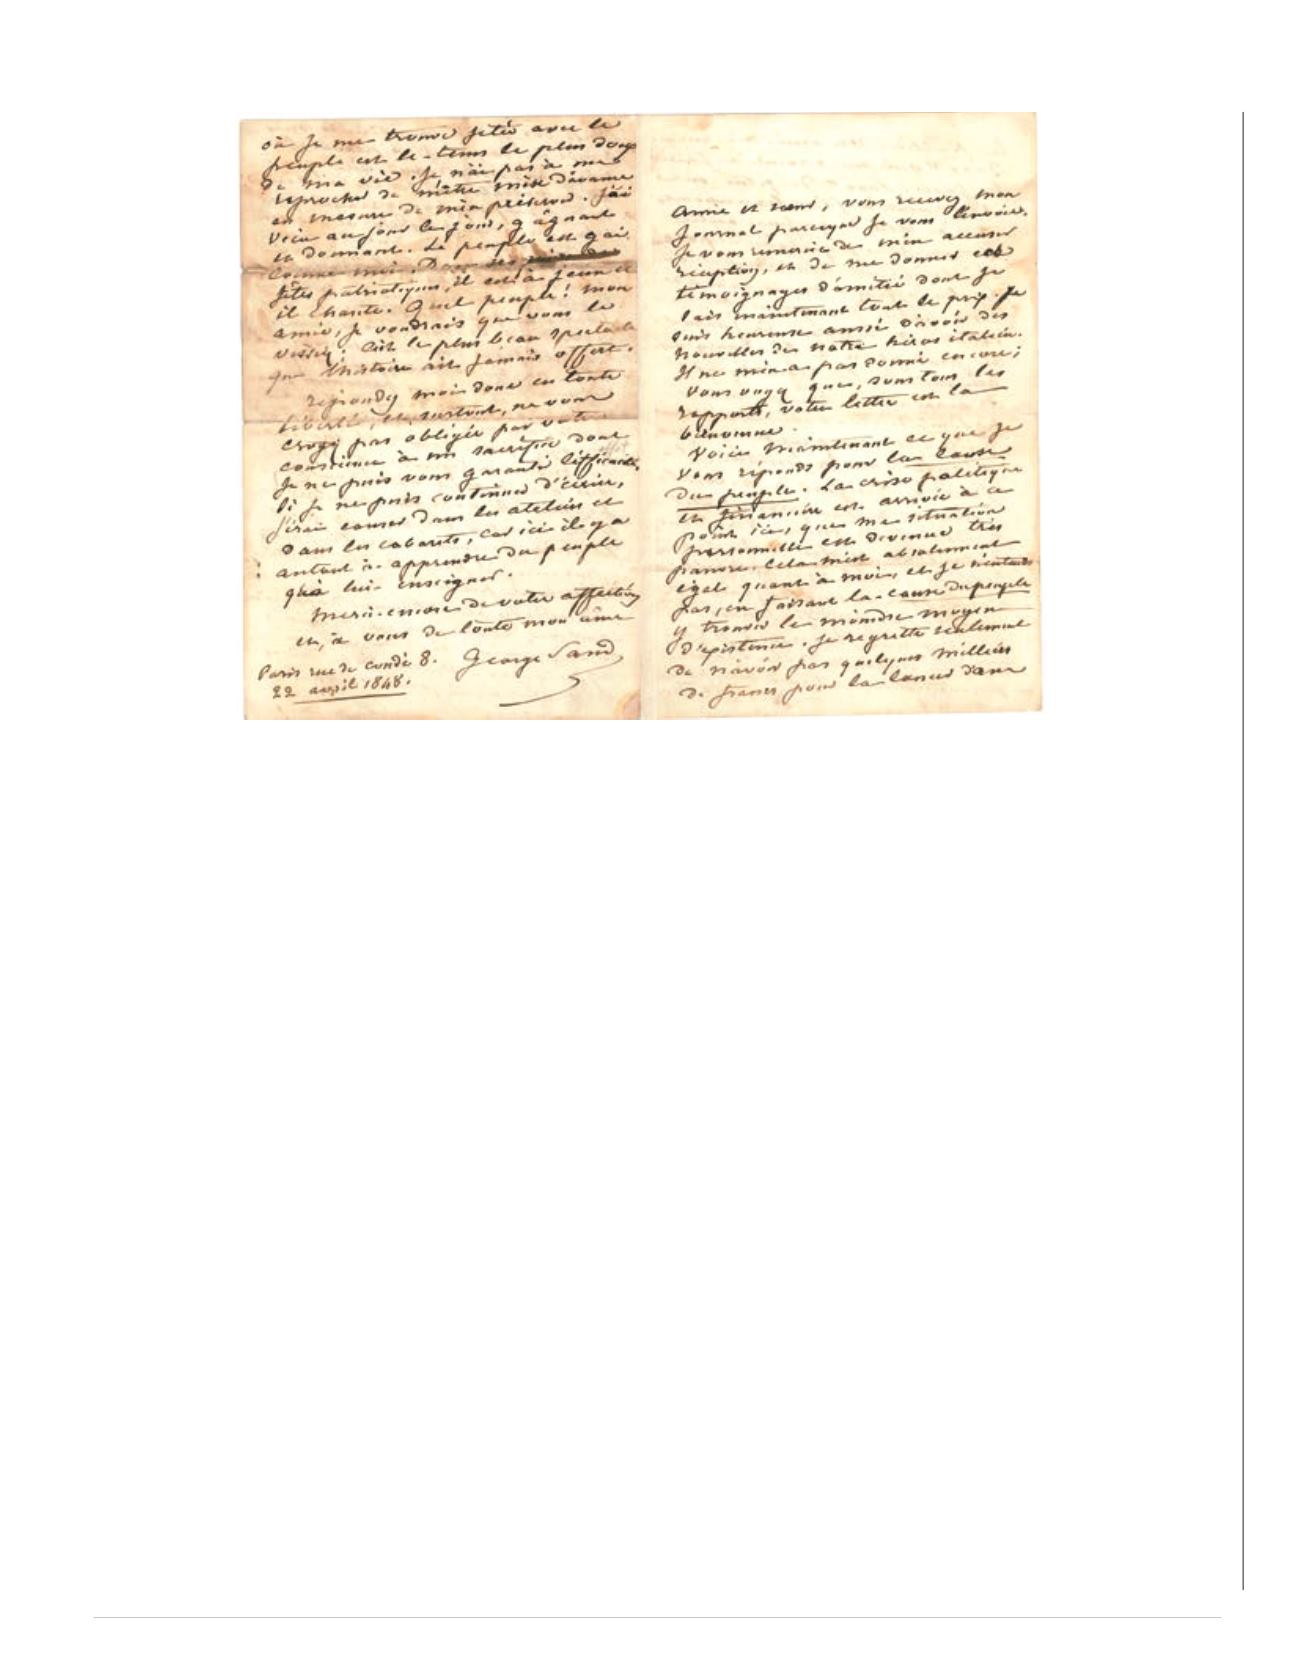 où je me trouve jetée avec le
peuple est le tems le plus doux
de ma vie. Je n'ai pas à me
reprocher de m'être mise d'avance
en mesure de m'en préserver. J'ai
vécu au jour le jour, gagnant
et donnant. Le peuple est gai
comme moi. Dans ses
fêtes patriotiques, il est à jeun et
il chante. Quel peuple! mon
amie, je voudrais que vous le
vissiez! C'est le plus beau spectacle
que l'histoire ait jamais offert.
répondez moi donc en toute
liberté, et, surtout, ne vous
croyez pas obligée par votre
conscience à un sacrifice dont
je ne puis vous garantir l'efficacité.
Si je ne puis continuer d'écrire,
j'irai causer dans les ateliers et
dans les cabarets, car ici il y a
autant à apprendre du peuple
qu'à lui enseigner.
Merci encore de votre affection
et, à vous de toute mon âme
George Sand
Paris rue de condé 8.
22 avril 1848.
Amie et sœur, vous recevez mon
journal parceque je vous l'envoie.
Je vous remercie de m'en accuser
réception, et de me donner ces
témoignages d'amitié dont je
sais maintenant tout le prix. Je
suis heureuse aussi d'avoir des
nouvelles de notre héros italien.
Il ne m'en a pas donné encore;
vous voyez que, sous tous les
rapports, votre lettre est la
bienvenue.
Voici maintenant ce que je
vous réponds pour la cause
du peuple. La crise politique
et financière est arrivée à ce
point ici, que ma situation
personnelle est devenue très
pauvre. Cela m'est absolument
égal quant à moi, et je n'entends
pas, en faisant la cause du peuple
y trouver le moindre moyen
d'existence. Je regrette seulement
de n'avoir pas quelques milliers
de francs pour la lancer dans